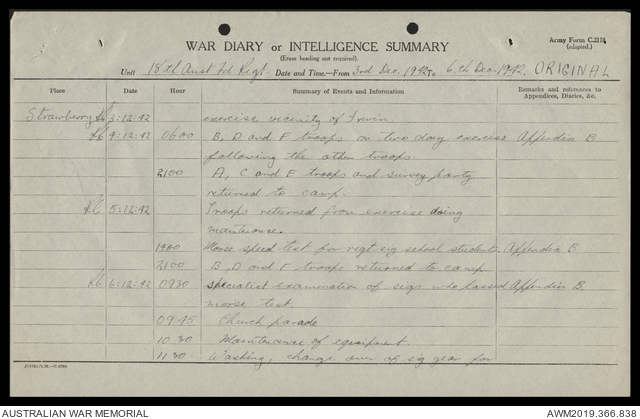 WAR DIARY or INTELLIGENCE SUMMARY
(Erase heading not required).
Army Form C.2118
(adapted.)
Unit 18th Aust Fd Regt. Date and Time.—From 3rd Dec. 1942 To 6th Dec. 1942. ORIGINAL
Place Date Hour Summary of Events and Information Remarks and references to Appendices, Diaries, &c.
Strawberry 3:12:42 exercise vicinity of Irwin
4:12:42 0600 B, D and F troops on two day exercise Appendix B
following the other troops.
2100 A, C and E troops and survey party
returned to camp.
5:12:42 Troops returned from exercise doing
maintenance.
1900 Morse speed test for regt sig school students Appendix B
2100 B, D and F troops returned to camp
6:12:42 0930 specialist examination of sigs who passed Appendix B.
morse test.
0945 Church parade
1030 Maintenance of equipment.
1130 Washing, change over of sig gear for
AUSTRALIAN WAR MEMORIAL AWM2019.366.838